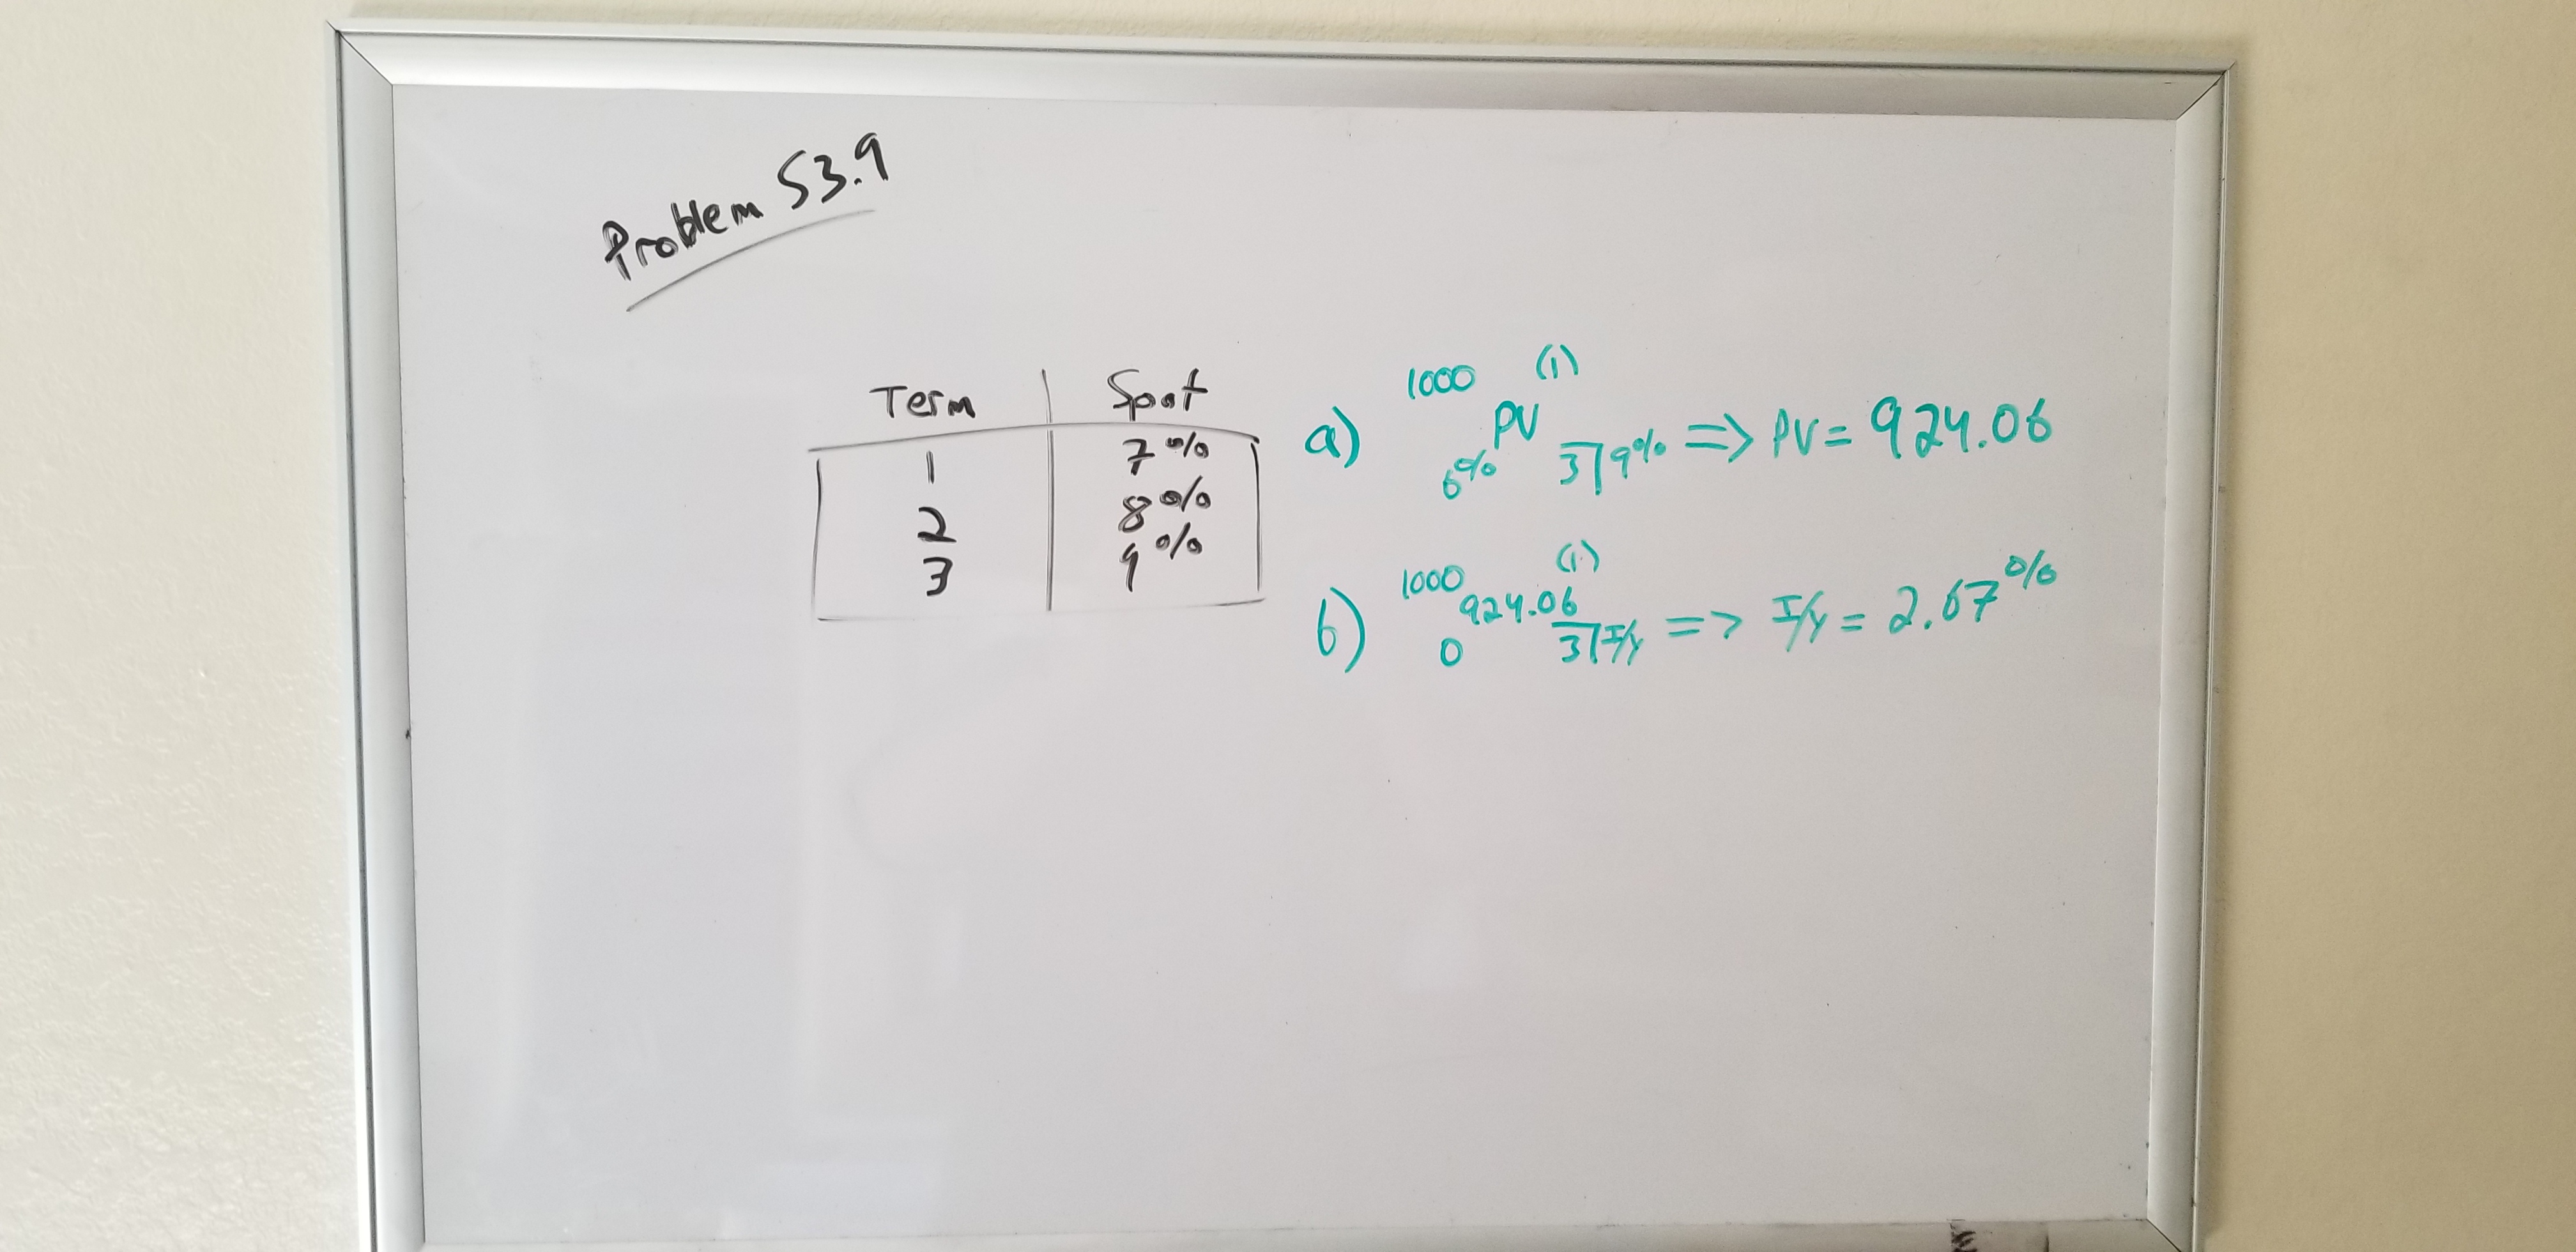 Problem 53.9
Term Spot
1 7%
2 8%
3 9%
a) 1000 PV (1) 6% 3|9% => PV = 924.06
b) 1000 924.06 (1) 0 3|I/Y => I/Y = 2.67%